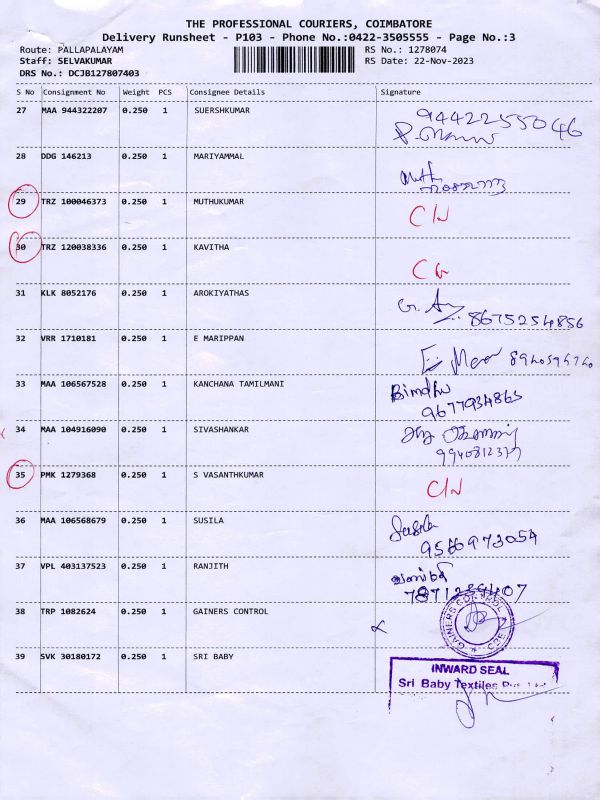 THE PROFESSIONAL COURIERS, COIMBATORE
Delivery Runsheet - P103 - Phone No.:0422-3505555 - Page No.:3
Route: PALLAPALAYAM RS No.: 1278074
Staff: SELVAKUMAR RS Date: 22-Nov-2023
DRS No.: DCJB127807403
S No Consignment No Weight PCS Consignee Details Signature
27 MAA 944322207 0.250 1 SUERSHKUMAR 9442255046
28 DDG 146213 0.250 1 MARIYAMMAL
29 TRZ 100046373 0.250 1 MUTHUKUMAR
30 TRZ 120038336 0.250 1 KAVITHA
31 KLK 8052176 0.250 1 AROKIYATHAS 8675254856
32 VRR 1710181 0.250 1 E MARIPPAN
33 MAA 106567528 0.250 1 KANCHANA TAMILMANI Bimdhu
9677934865
34 MAA 104916090 0.250 1 SIVASHANKAR
35 PMK 1279368 0.250 1 S VASANTHKUMAR
36 MAA 106568679 0.250 1 SUSILA Susila
37 VPL 403137523 0.250 1 RANJITH
38 TRP 1082624 0.250 1 GAINERS CONTROL
GAINERS CONTROL
39 SVK 30180172 0.250 1 SRI BABY
INWARD SEAL
Sri Baby Textiles